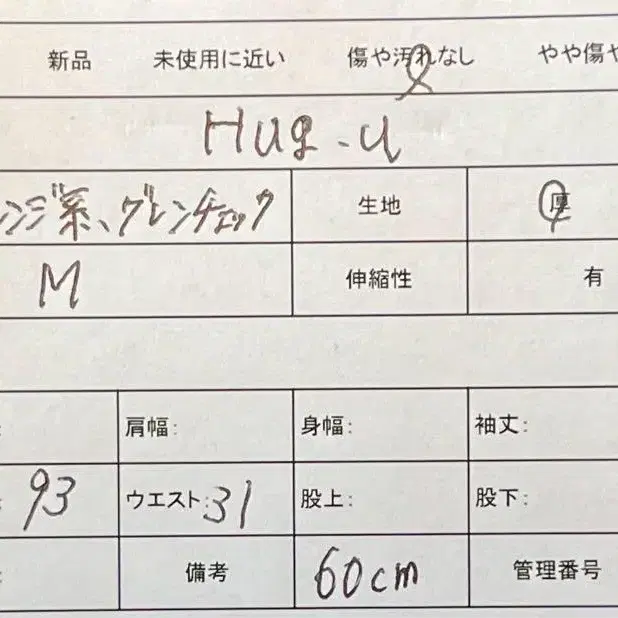 新品 未使用に近い 傷や汚れなし やや傷や
Hug.u
ンジ系、グレンチェック 生地 厚
M 伸縮性 有
肩幅: 身幅: 袖丈:
93 ウエスト:31 股上: 股下:
備考 60cm 管理番号